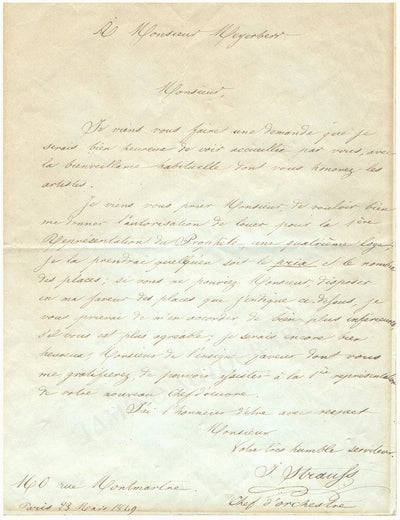 À Monsieur Meyerbeer
Monsieur,
Je viens vous faire une demande que je
serais bien heureux de voir accueillie par vous, avec
la bienveillance habituelle dont vous honorez les
artistes.
je viens vous prier Monsieur, de vouloir bien
me donner l'autorisation de louer pour la 1ère
Représentation du Prophète, une quatrième loge,
je la prendrai quelqu'en soit le prix et le nombre
des places; si vous ne pouvez Monsieur, disposer
en ma faveur des places que j'indique ci dessus, je
vous prierai de m'en accorder de bien plus inférieures
s'il vous est plus agréable, je serais encore bien
heureux, Monsieur de l'insigne faveur dont vous
me gratifierez, de pouvoir assister à la 1re représentation
de votre nouveau chef d'oeuvre.
J'ai l'honneur d'être avec respect
Monsieur
Votre très humble serviteur
J Strauss
Chef d'orchestre
rue Montmartre.
Paris 23 Mars 1849